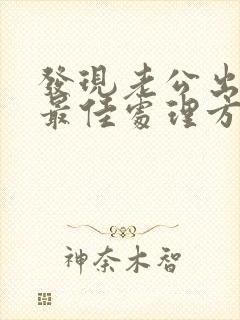 發現老公出
最佳處理方
神奈木智